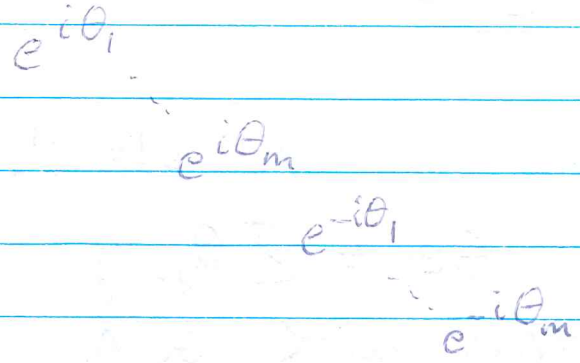 e^{iθ_1}
⋱
e^{iθ_m}
e^{-iθ_1}
⋱
e^{-iθ_m}